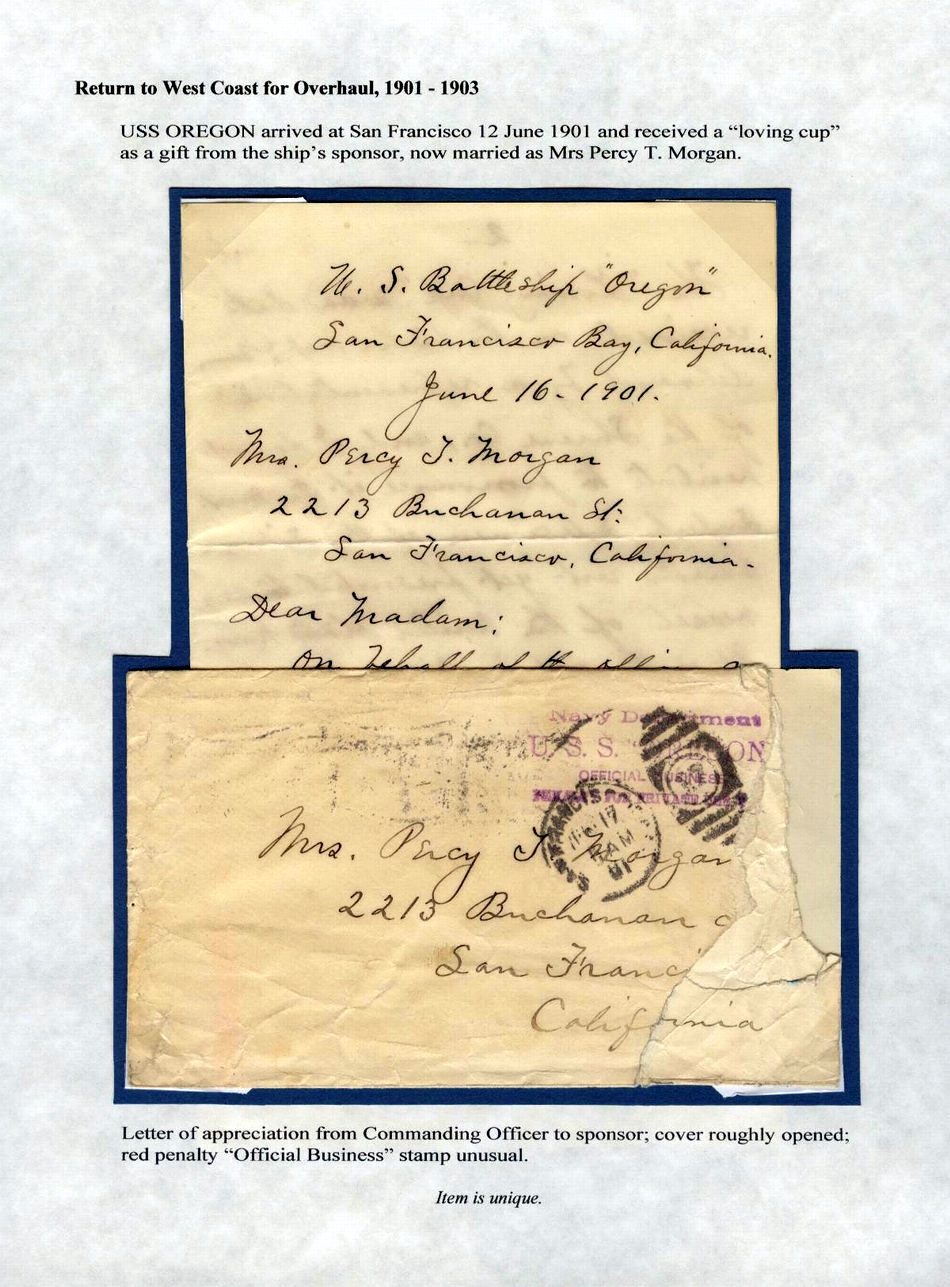 Return to West Coast for Overhaul, 1901 - 1903
USS OREGON arrived at San Francisco 12 June 1901 and received a “loving cup”
as a gift from the ship’s sponsor, now married as Mrs Percy T. Morgan.
U. S. Battleship "Oregon"
San Francisco Bay, California.
June 16 - 1901.
Mrs. Percy T. Morgan
2213 Buchanan St.
San Francisco, California.
Dear Madam:
On behalf of the
Navy Department
U. S. S. OREGON
OFFICIAL BUSINESS
FOR PRIVATE
SAN FRANCISCO
17
AM
01
Mrs. Percy T. Morgan
2213 Buchanan
San Franci
California
Letter of appreciation from Commanding Officer to sponsor; cover roughly opened;
red penalty “Official Business” stamp unusual.
Item is unique.